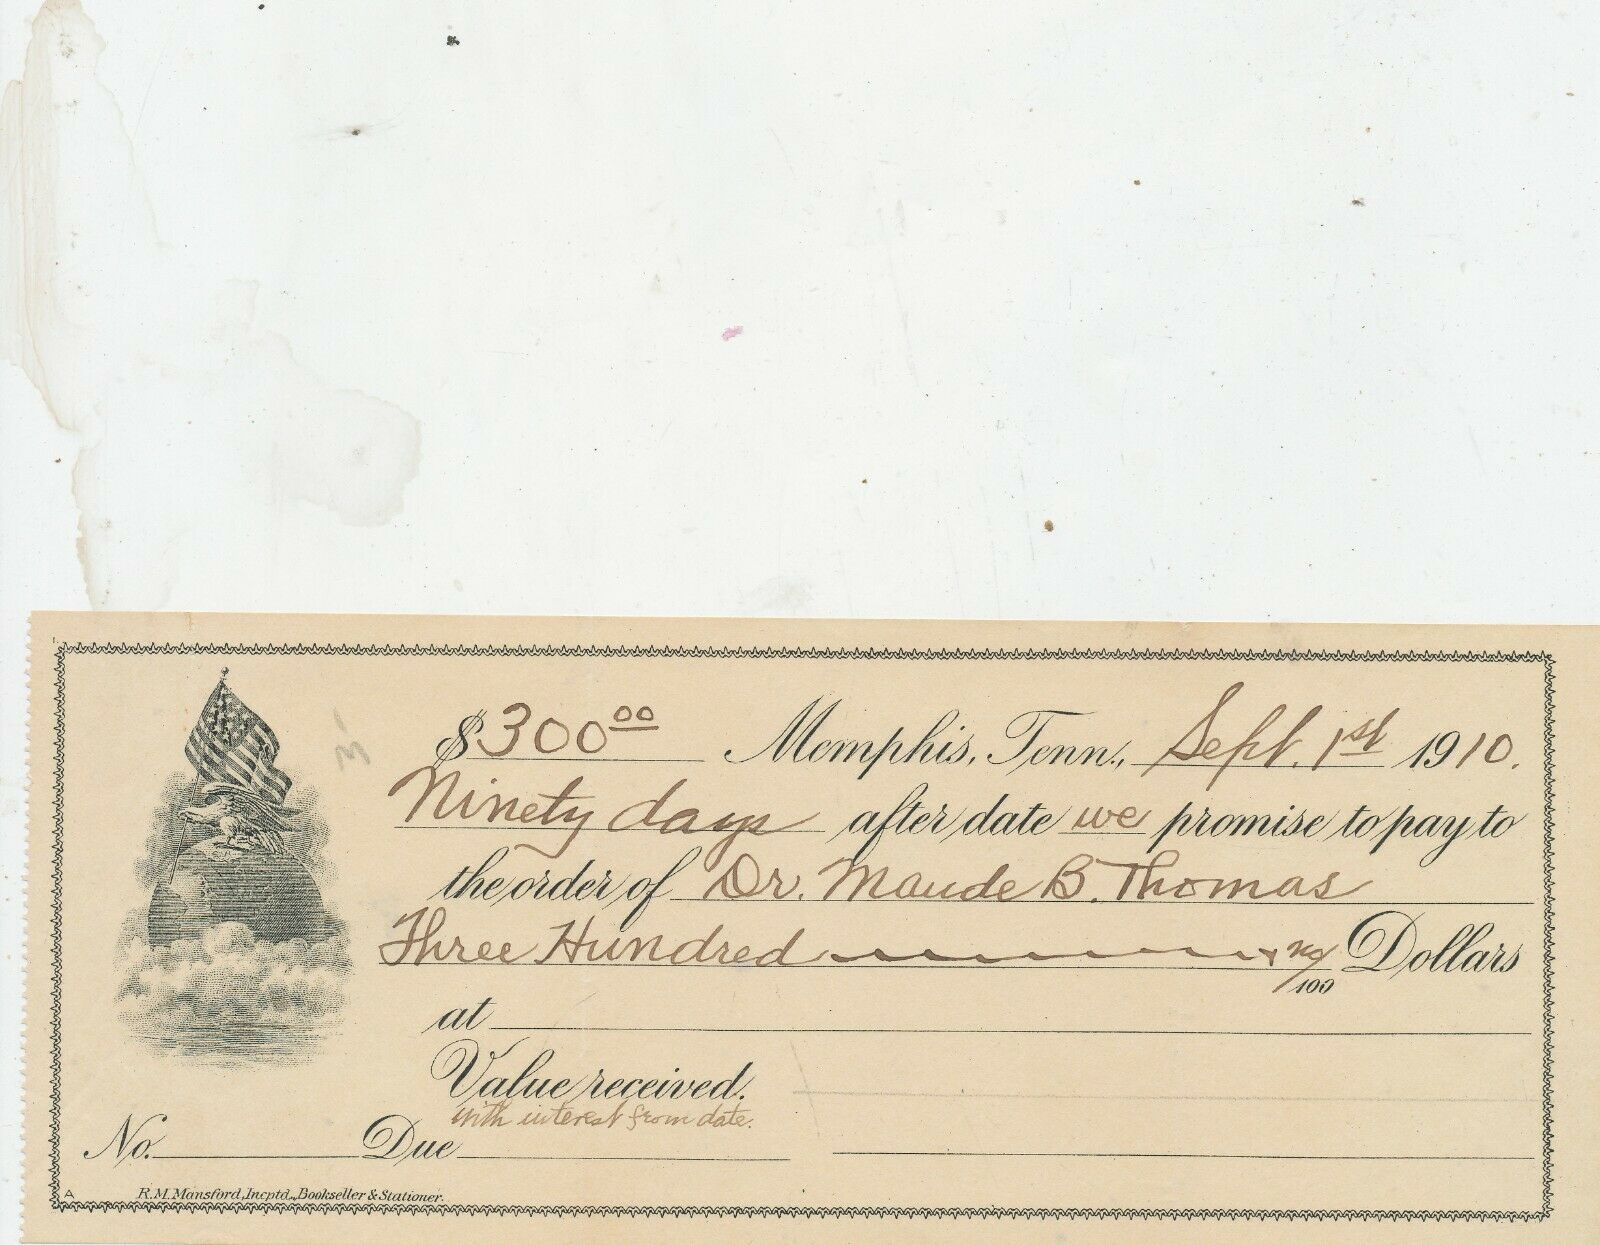 $300 00 Memphis, Tenn., Sept. 1st 1910.
Ninety days after date we promise to pay to
the order of Dr. Maude B. Thomas
Three Hundred & no/100 Dollars
at
Value received.
with interest from date.
No. Due
A R. M. Mansford, Incptd., Bookseller & Stationer.